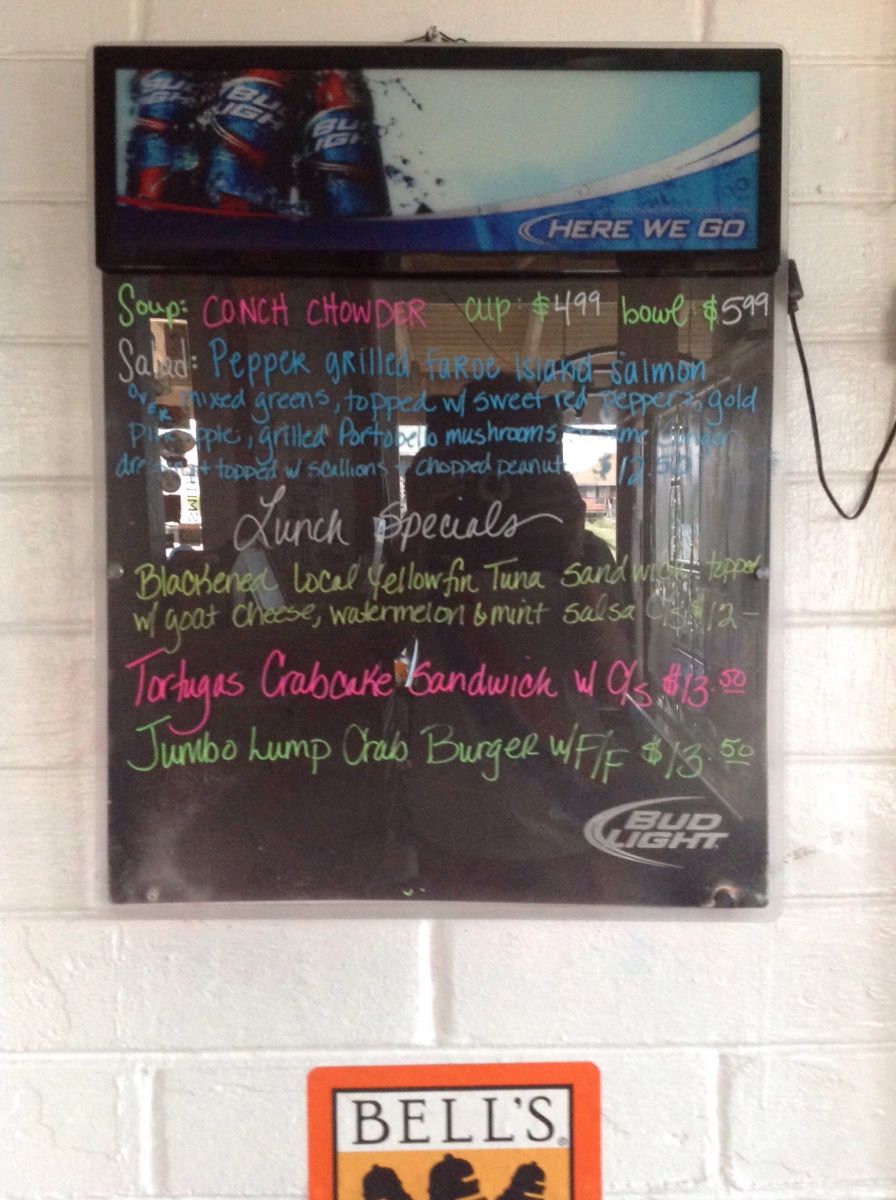 BUD LIGHT
BUD LIGHT
BUD LIGHT
HERE WE GO
Soup: CONCH CHOWDER cup: $4.99 bowl $5.99
Salad: Pepper grilled Faroe Island Salmon
over mixed greens, topped w/ sweet red peppers, gold
pineapple, grilled Portobello mushrooms, sesame ginger
dressing + topped w/ scallions + chopped peanuts $12.50
Lunch Specials
Blackened Local Yellowfin Tuna Sandwich topped
w/ goat cheese, watermelon & mint salsa C/S $12-
Tortugas Crabcake Sandwich w/ C/S $13.50
Jumbo Lump Crab Burger w/ F/F $13.50
BUD
LIGHT
BELL'S